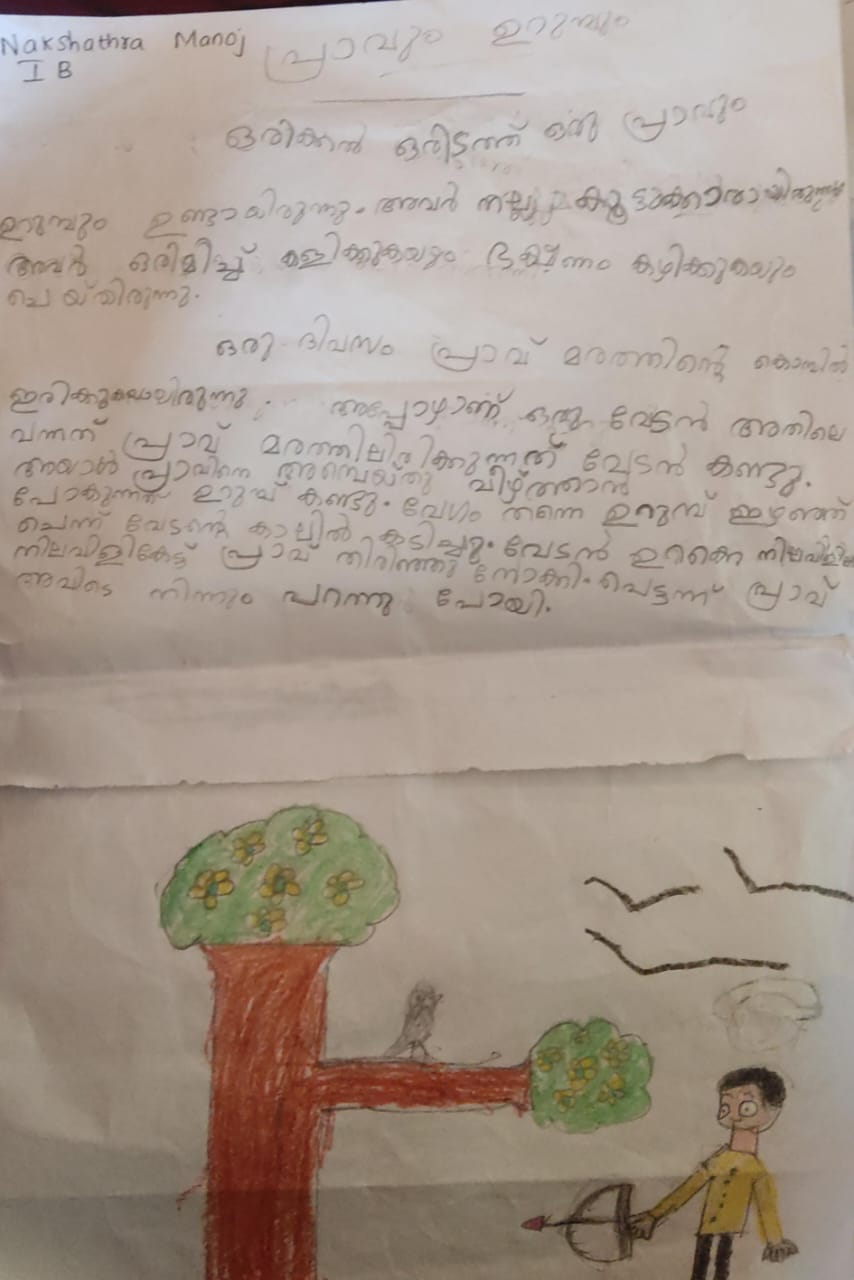 Nakshathra Manoj
I B
പ്രാവും ഉറുമ്പും
ഒരിക്കൽ ഒരിടത്ത് ഒരു പ്രാവും
ഉറുമ്പും ഉണ്ടായിരുന്നു. അവർ നല്ല കൂട്ടുക്കാരായിരുന്നു
അവർ ഒരിമിച്ച് കളിക്കുകയും ഭക്ഷണം കഴിക്കുകയും
ചെയ്തിരുന്നു.
ഒരു ദിവസം പ്രാവ് മരത്തിന്റെ കൊമ്പിൽ
ഇരിക്കുകയായിരുന്നു. അപ്പോഴാണ് ഒരു വേടൻ അതിലെ
വന്നത് പ്രാവ് മരത്തിലിരിക്കുന്നത് വേടൻ കണ്ടു.
അയാൾ പ്രാവിനെ അമ്പെയ്തു വീഴ്ത്താൻ
പോകുന്നത് ഉറുമ്പ് കണ്ടു. വേഗം തന്നെ ഉറുമ്പ് ഇഴഞ്ഞ്
ചെന്ന് വേടന്റെ കാലിൽ കടിച്ചു. വേടൻ ഉറക്കെ നിലവിളിച്ചു
നിലവിളികേട്ട് പ്രാവ് തിരിഞ്ഞു നോക്കി. പെട്ടന്ന് പ്രാവ്
അവിടെ നിന്നും പറന്നു പോയി.